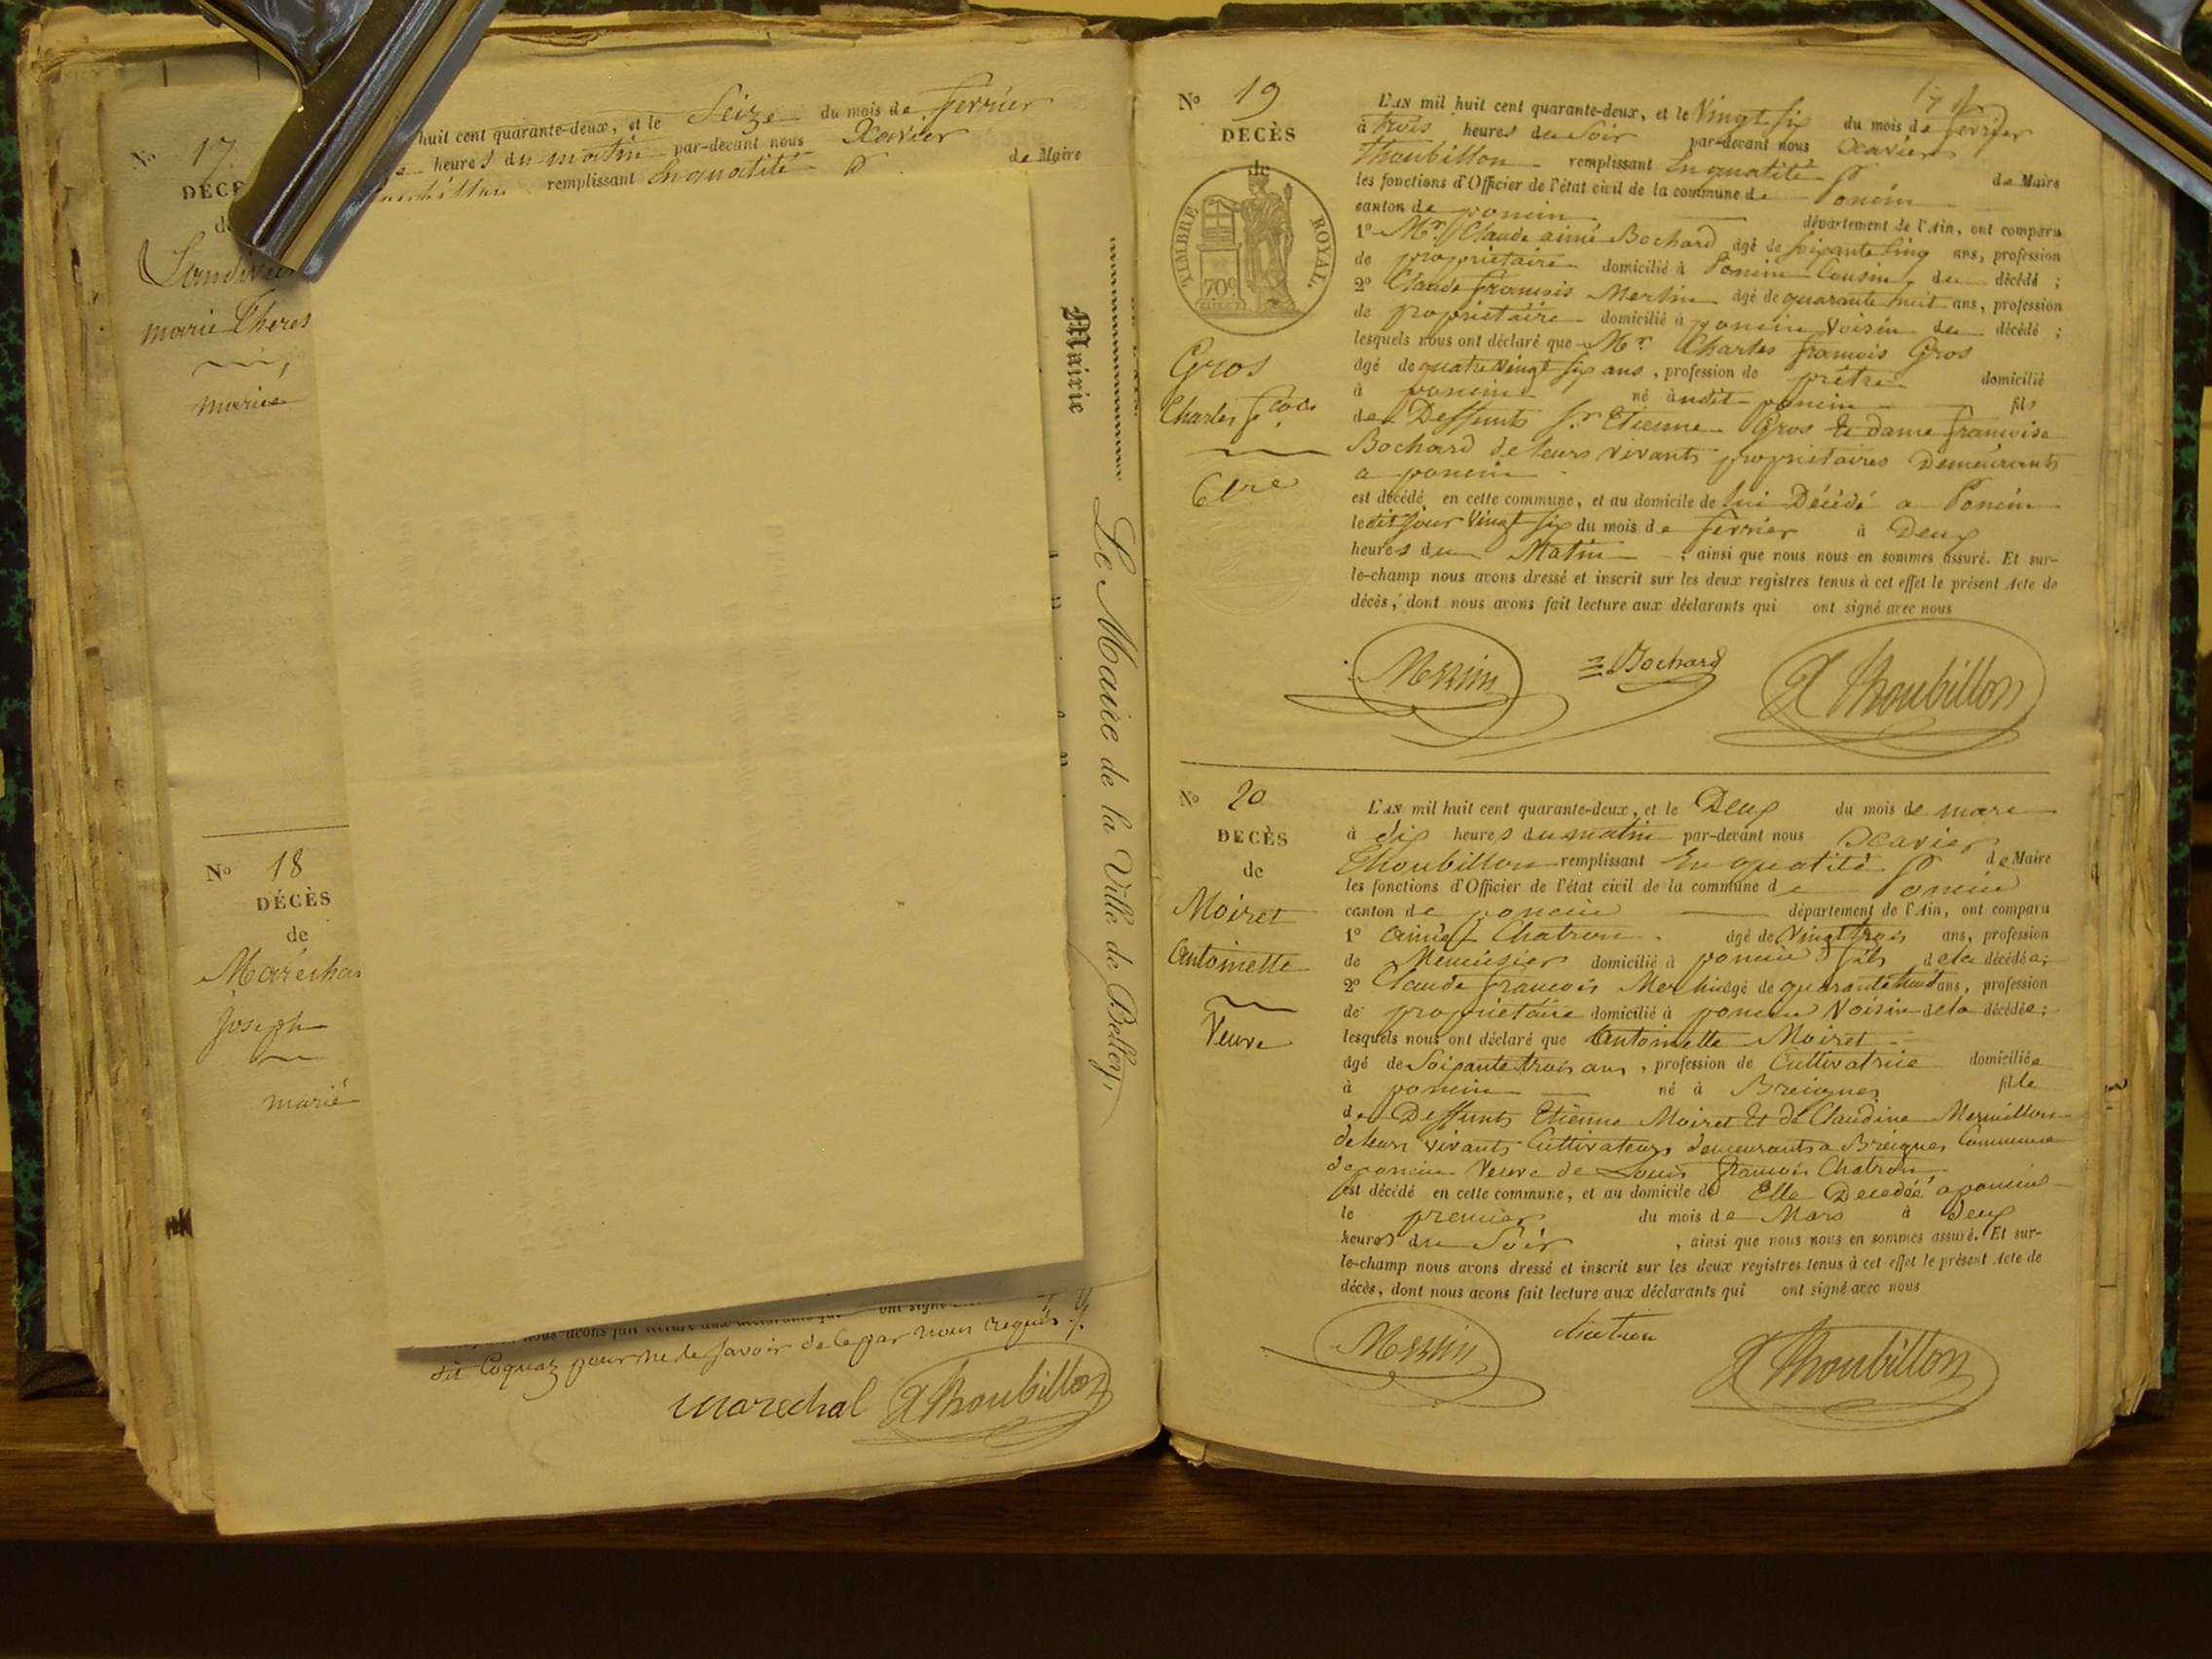 Nº 17
huit cent quarante-deux, et le Seize du mois de fevrier
heures du matin par-devant nous Xavier
remplissant En qualité de Maire
DÉCÈ
de
marie Theres
mariée
Mairie
Le Maire de la Ville de Belley,
Nº 18
DÉCÈS
de
Maréchal
joseph
marié
nous avons fait lecture aux déclarants qui ont signé
dit Coquaz pour ne le savoir de ce par nous requis ./.
marechal X Thoubillon
Nº 19
DECÈS
de
TIMBRE ROYAL.
70c
Gros
Charles fcois
L'AN mil huit cent quarante-deux, et le Vingt six du mois de fevrier
à trois heures du Soir par-devant nous Xavier
Thoubillon remplissant En qualité de Maire
les fonctions d'Officier de l'état civil de la commune de Poncin
canton de poncin département de l'Ain, ont comparu
1º Mr. Claude aimé Bochard âgé de soixante cinq ans, profession
de propriétaire domicilié à Poncin Cousin du décédé ;
2º Claude françois Merlin âgé de quarante huit ans, profession
de propriétaire domicilié à poncin Voisin du décédé ;
lesquels nous ont déclaré que Mr. Charles françois Gros
âgé de quatre Vingt six ans, profession de prêtre domicilié
à poncin né audit poncin fils
des Deffunts Sr. Etienne Gros Et dame françoise
Bochard de leurs vivants propriétaires Demeurants
a poncin
est décédé en cette commune, et au domicile de lui Décédé a Poncin
ledit jour Vingt six du mois de fevrier à Deux
heures du Matin ; ainsi que nous nous en sommes assuré. Et sur-
le-champ nous avons dressé et inscrit sur les deux registres tenus à cet effet le présent Acte de
décès, dont nous avons fait lecture aux déclarants qui ont signé avec nous
Bochard X Thoubillon
Nº 20
DECÈS
de
Moiret
Antoinette
Veuve
L'AN mil huit cent quarante-deux, et le Deux du mois de mars
à dix heures du matin par-devant nous Xavier
Thoubillon remplissant En qualité de Maire
les fonctions d'Officier de l'état civil de la commune de Poncin
canton de poncin département de l'Ain, ont comparu
1º Chatron âgé de Vingt trois ans, profession
de Menuisier domicilié à poncin fils de la décédée;
2º Claude françois Merlin âgé de quarante huit ans, profession
de propriétaire domicilié à poncin Voisin de la décédée;
lesquels nous ont déclaré que Antoinette Moiret
âgé de Soixante trois ans, profession de Cultivatrice domiciliée
à poncin né à Breignes fille
des Deffunts Etienne Moiret Et de Claudine Mermillon
de leurs vivants Cultivateurs demeurants a Breignes Commune
de poncin Veuve de Louis françois Chatron
est décédé en cette commune, et au domicile de Elle Decedée a poncin
le premier du mois de Mars à deux
heures du Soir, ainsi que nous nous en sommes assuré. Et sur-
le-champ nous avons dressé et inscrit sur les deux registres tenus à cet effet le présent Acte de
décès, dont nous avons fait lecture aux déclarants qui ont signé avec nous
chatron X Thoubillon